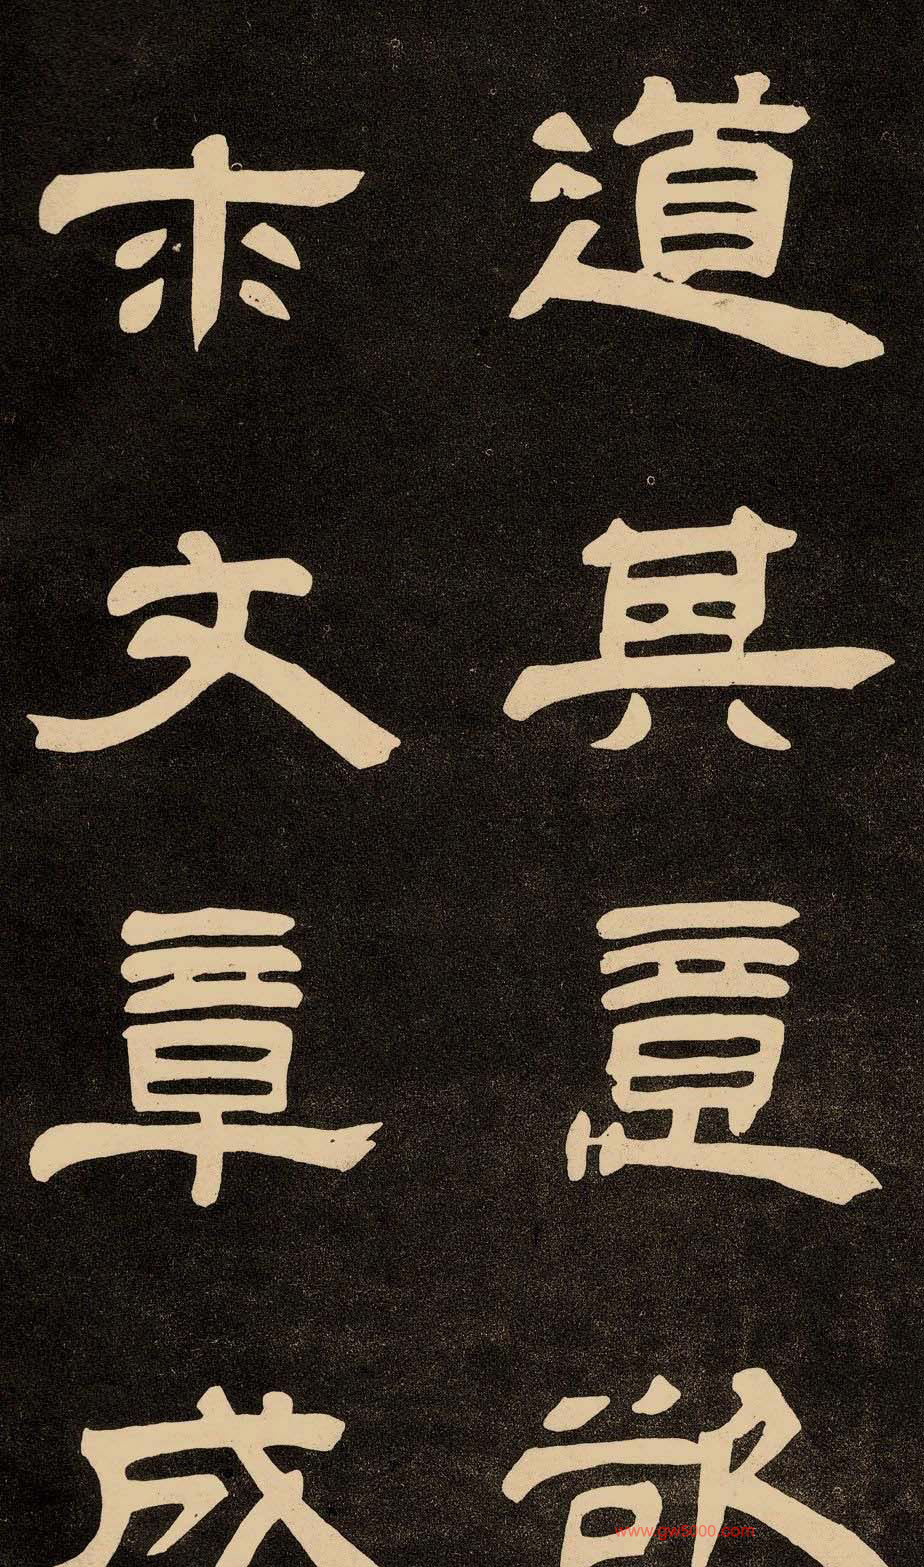 道其意欲
求文章成
www.gw5000.com